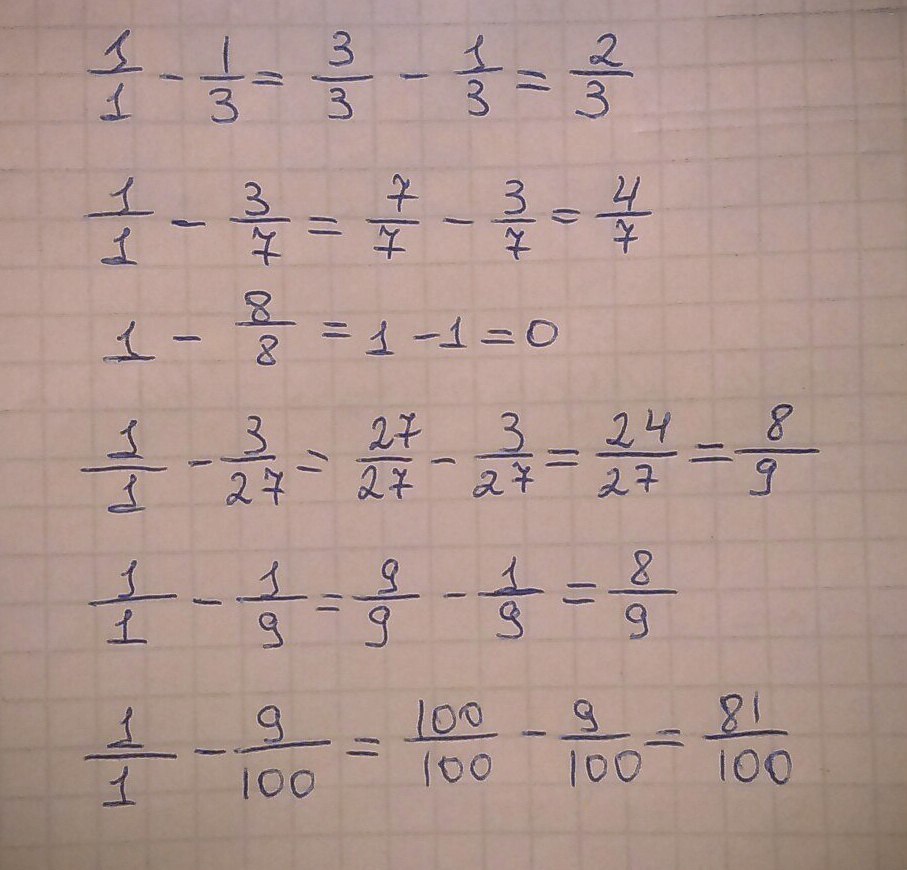 1/1 - 1/3 = 3/3 - 1/3 = 2/3
1/1 - 3/7 = 7/7 - 3/7 = 4/7
1 - 8/8 = 1 - 1 = 0
1/1 - 3/27 = 27/27 - 3/27 = 24/27 = 8/9
1/1 - 1/9 = 9/9 - 1/9 = 8/9
1/1 - 9/100 = 100/100 - 9/100 = 81/100